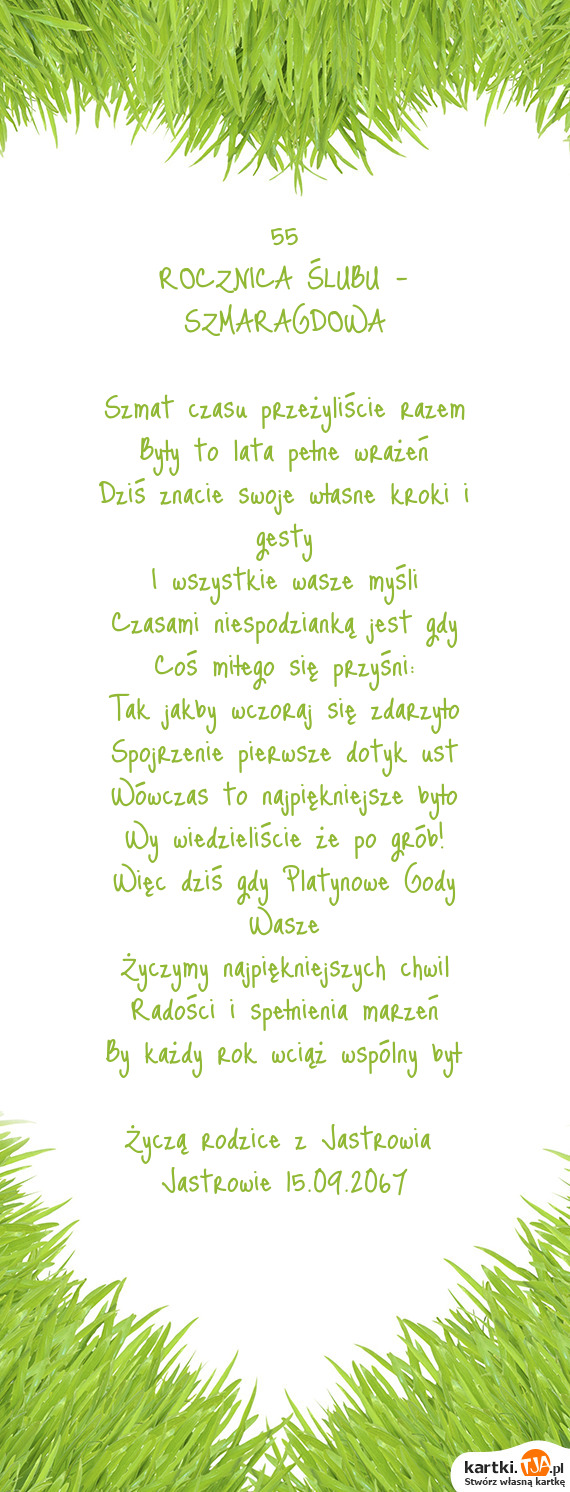 55
ROCZNICA ŚLUBU -
SZMARAGDOWA
Szmat czasu przeżyliście razem
Były to lata pełne wrażeń
Dziś znacie swoje własne kroki i
gesty
I wszystkie wasze myśli
Czasami niespodzianką jest gdy
Coś miłego się przyśni:
Tak jakby wczoraj się zdarzyło
Spojrzenie pierwsze dotyk ust
Wówczas to najpiękniejsze było
Wy wiedzieliście że po grób!
Więc dziś gdy Platynowe Gody
Wasze
Życzymy najpiękniejszych chwil
Radości i spełnienia marzeń
By każdy rok wciąż wspólny był
Życzą rodzice z Jastrowia
Jastrowie 15.09.2067
kartki.TJA.pl
Stwórz własną kartkę